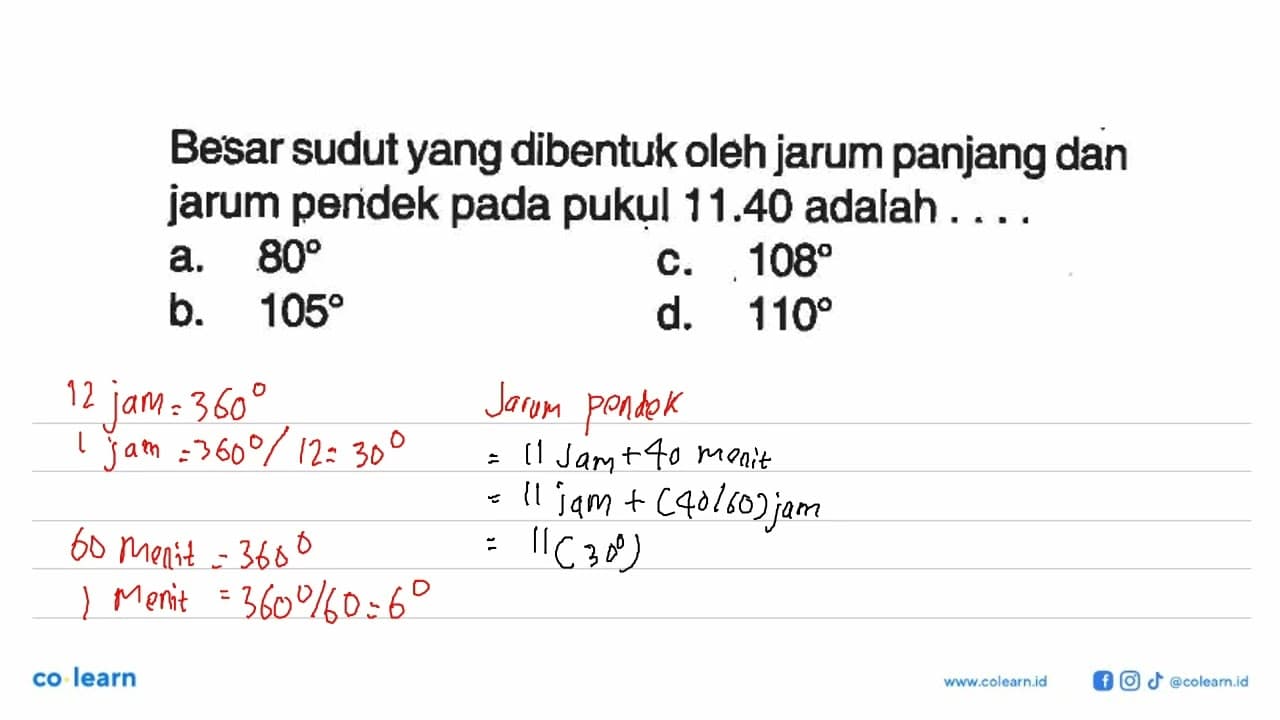 Besar sudut yang dibentuk oleh jarum panjang dan
jarum pendek pada pukul 11.40 adalah . . . .
a. 80° c. 108°
b. 105° d. 110°
12 jam = 360°
1 jam = 360°/12 = 30°
60 menit = 360°
1 menit = 360°/60 = 6°
Jarum pendek
= 11 Jam + 40 menit
= 11 jam + (40/60) jam
= 11(30°)
co learn
www.colearn.id @colearn.id